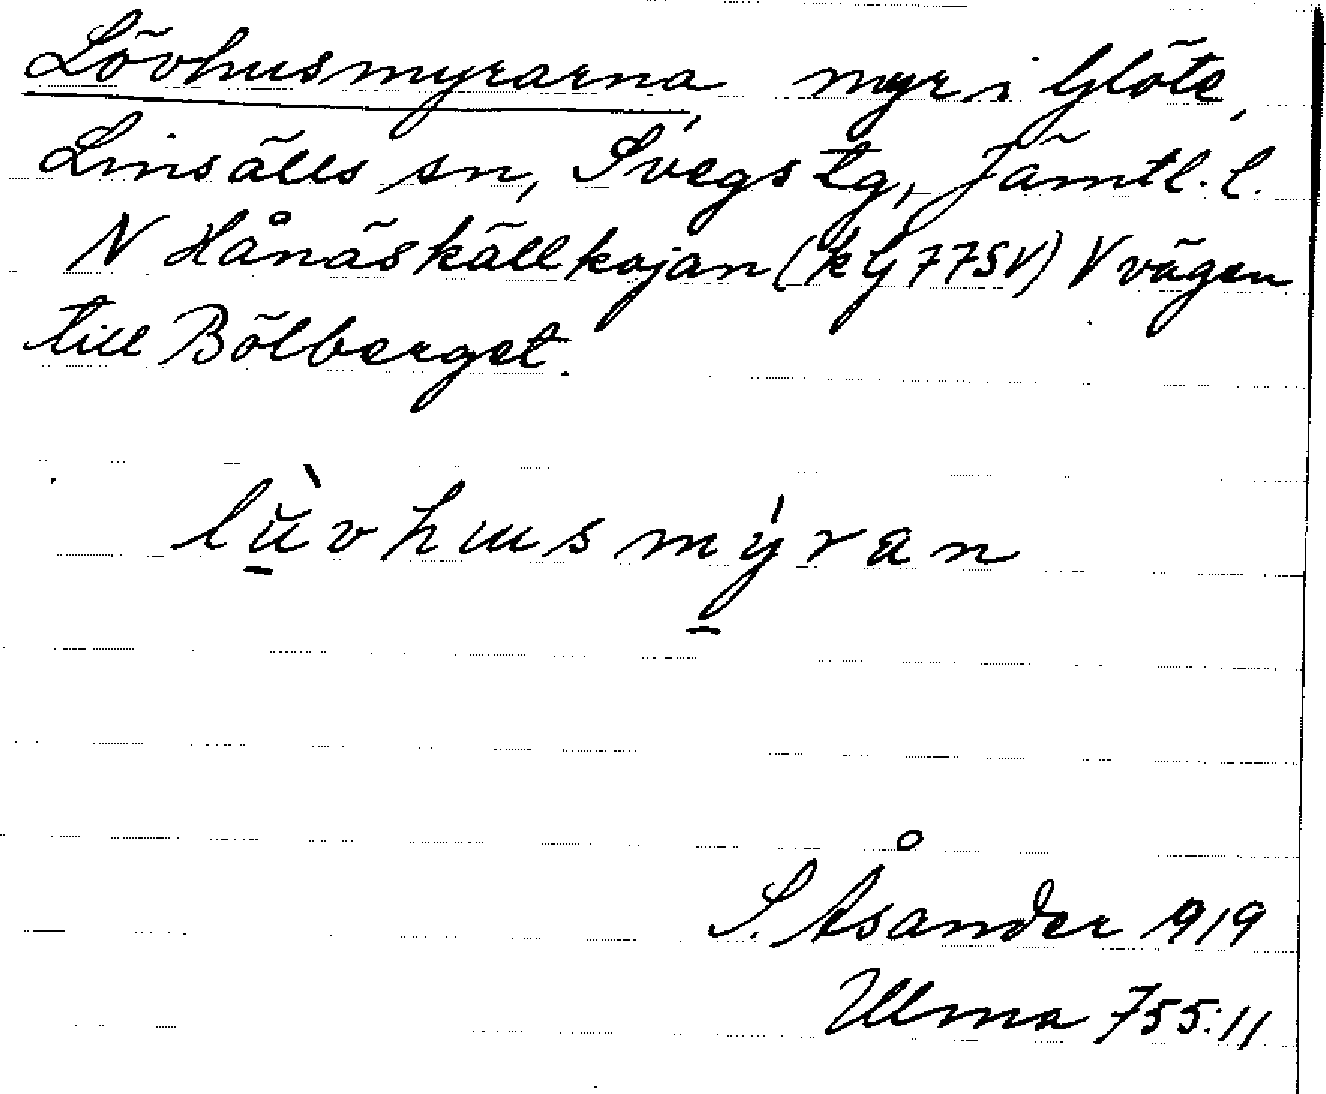 Lövhusmyrarna, myr i Glöte,
Linsälls sn, Svegs tg, Jämtl. l.
N Hånäskällkojan (kG77SV) V vägen
till Bölberget.
lǜvhusmýran
S. Åsander 1919
Ulma 755:11